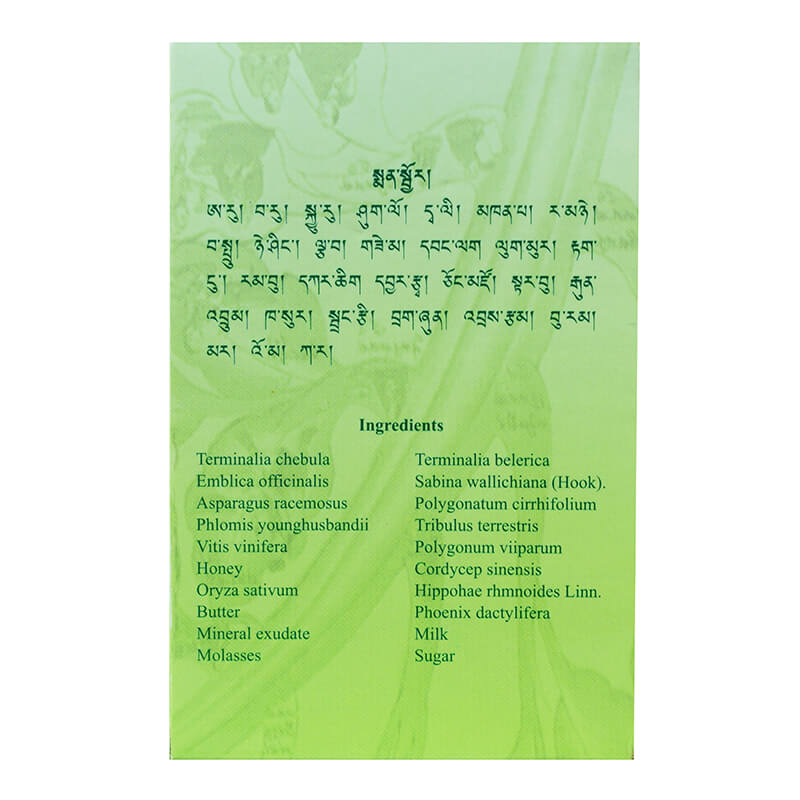 སྨན་སྦྱོར།
ཨ་རུ། བ་རུ། སྐྱུ་རུ། ཤུག་ལོ། དྭ་ལི། མཁན་པ། ར་མཉེ།
བ་སྤྲུ། ཉེ་ཤིང་། ལྕ་བ། གཟེ་མ། དབང་ལག ལུག་མུར། རྟག་
ངུ། རམ་བུ། དཀར་ཆིག དབྱར་རྩྭ། ཅོང་མཛོ། སྟར་བུ། རྒུན་
འབྲུམ། ཁ་སུར། སྦྲང་རྩི། བྲག་ཞུན། འབྲས་རྩམ། བུ་རམ།
མར། འོ་མ། ཀ་ར།
Ingredients
Terminalia chebula Terminalia belerica
Emblica officinalis Sabina wallichiana (Hook).
Asparagus racemosus Polygonatum cirrhifolium
Phlomis younghusbandii Tribulus terrestris
Vitis vinifera Polygonum viiparum
Honey Cordycep sinensis
Oryza sativum Hippohae rhmnoides Linn.
Butter Phoenix dactylifera
Mineral exudate Milk
Molasses Sugar